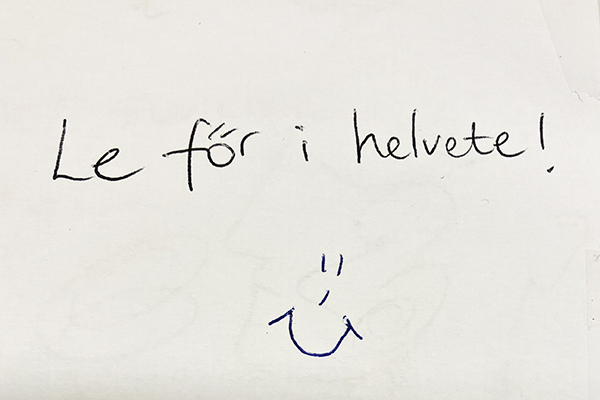 Le för i helvete!